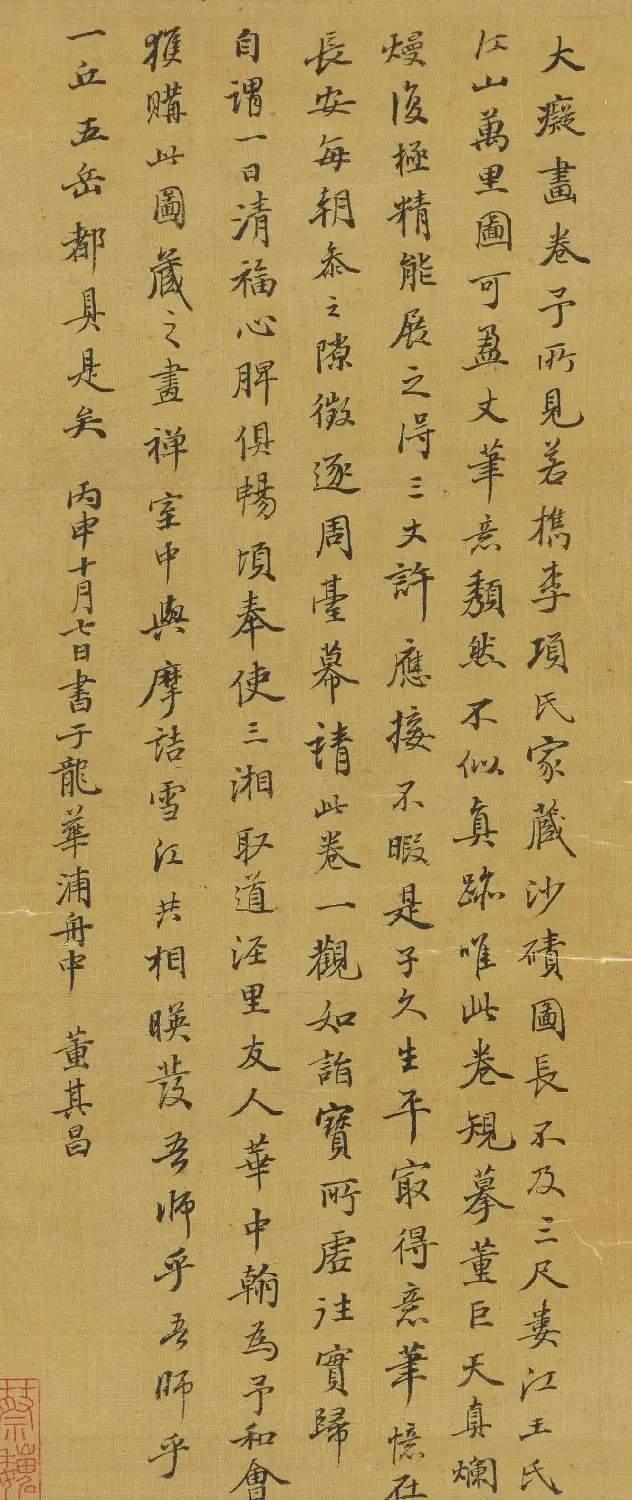 大癡畫卷予所見若檇李項氏家藏沙磧圖長不及三尺婁江王氏
江山萬里圖可盈丈筆意頹然不似真跡唯此卷規摹董巨天真爛
熳復極精能展之得三丈許應接不暇是子久生平最得意筆憶在
長安每朝參之隙徵逐周臺幕請此卷一觀如詣寶所虛往實歸
自謂一日清福心脾俱暢頃奉使三湘取道涇里友人華中翰為予和會
獲購此圖藏之畫禪室中與摩詰雪江共相暎發吾師乎吾師乎
一丘五岳都具是矣 丙申十月七日書于龍華浦舟中 董其昌